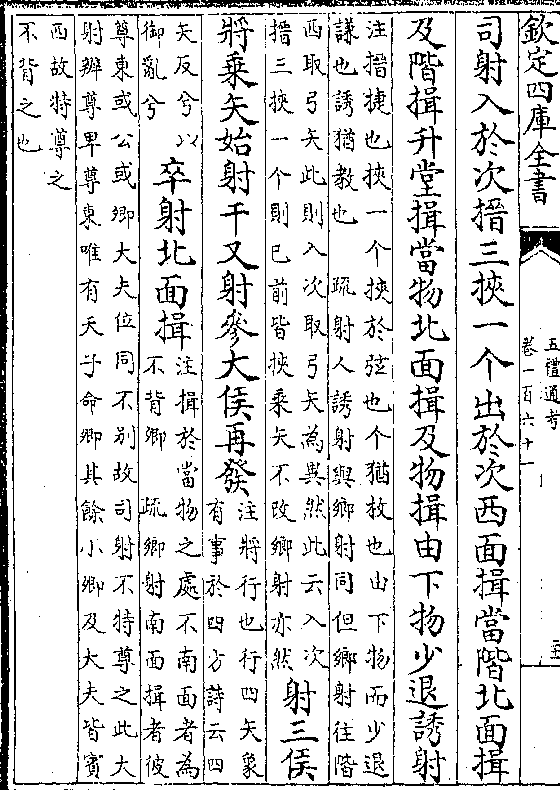 欽定四庫全書
五禮通考
卷一百六十一
司射入於次搢三挾一个出於次西面揖當階北面揖
及階揖升堂揖當物北面揖及物揖由下物少退誘射
注搢捷也挾一个挾於弦也个猶枚也由下物而少退
謙也誘猶教也　疏射人誘射與鄉射同但鄉射往階
西取弓矢此則入次取弓矢為異然此云入次
搢三挾一个則已前皆挾乘矢不改鄉射亦然
射三侯
將乘矢始射干又射參大侯再發
注將行也行四矢象
有事於四方詩云四
矢反兮以
御亂兮
卒射北面揖
注揖於當物之處不南面者為
不背卿　疏鄉射南面揖者彼
尊東或公或卿大夫位同不別故司射不特尊之此大
射辨尊卑尊東唯有天子命卿其餘小卿及大夫皆賓
西故特尊之
不背之也